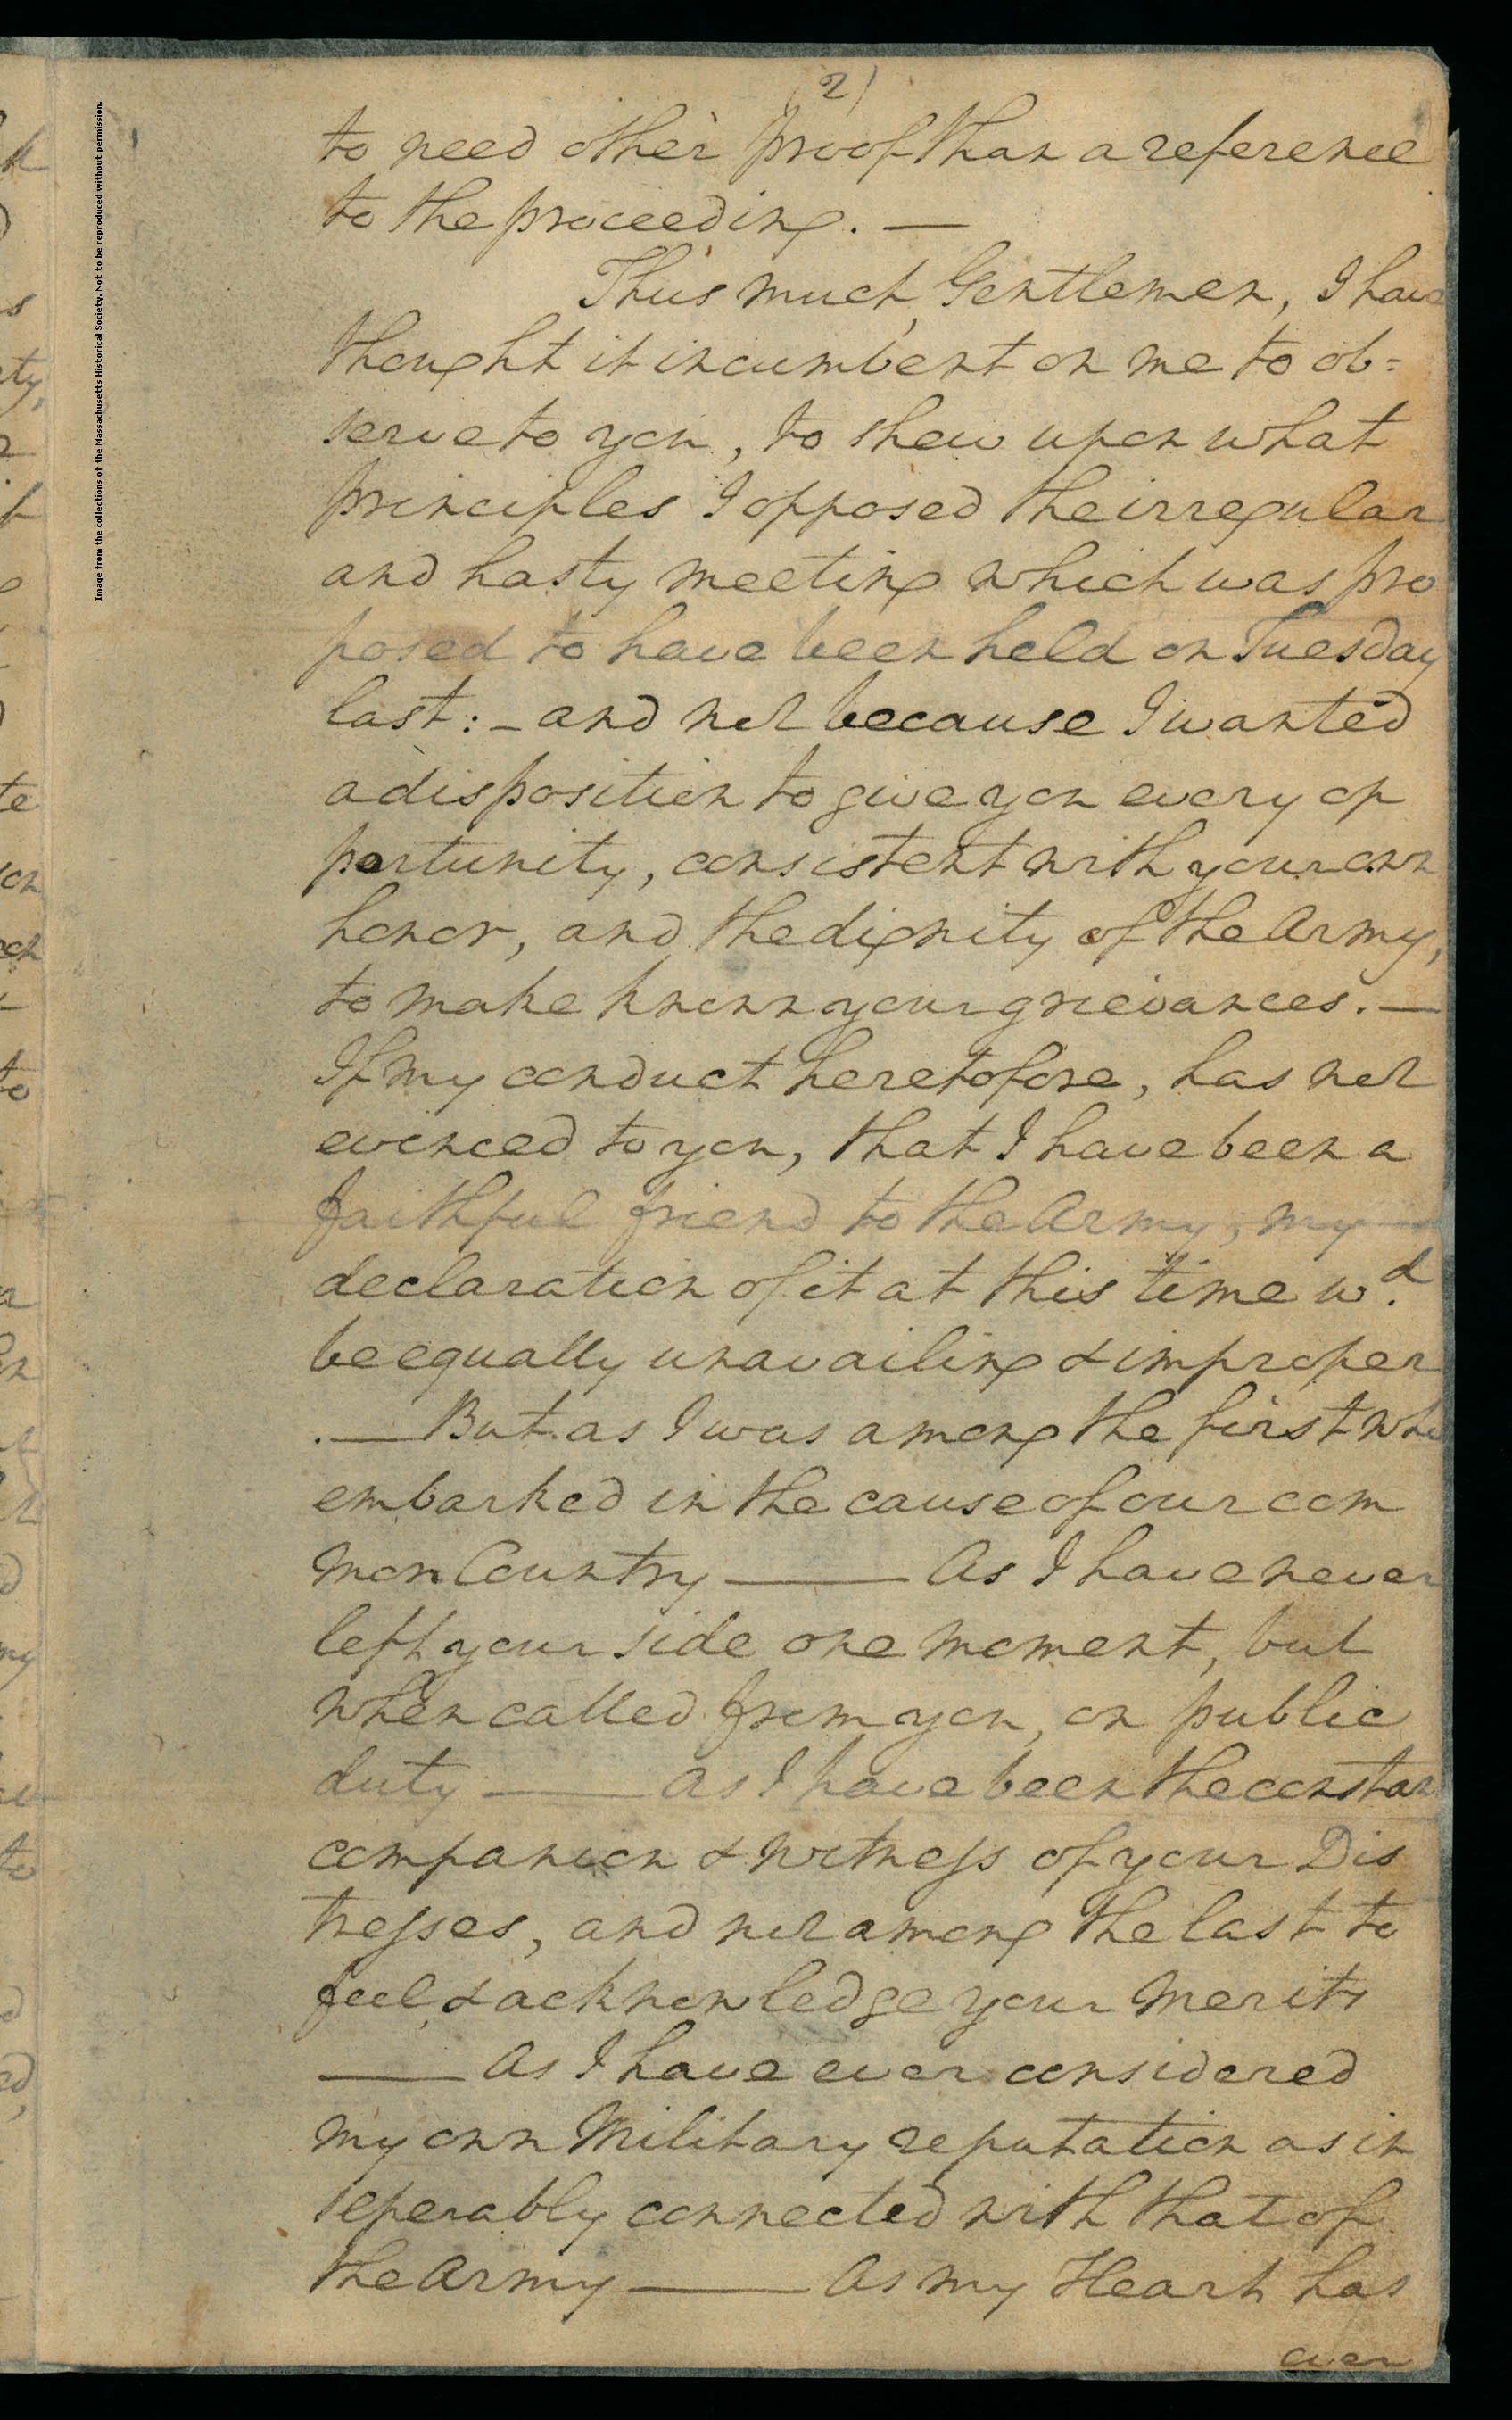 (2)
to need other proof than a reference
to the proceeding. —
Thus much, Gentlemen, I have
thought it incumbent on me to ob=
serve to you, to shew upon what
principles I opposed the irregular
and hasty meeting which was pro
posed to have been held on Tuesday
last: – and not because I wanted
a disposition to give you every op
portunity, consistent with your own
honor, and the dignity of the Army,
to make known your grievances. —
If my conduct heretofore, has not
evinced to you, that I have been a
faithful friend to the Army, my —
declaration of it at this time wd.
be equally unavailing & improper
. — But as I was among the first who
embarked in the cause of our com
mon Country — As I have never
left your side one moment, but
when called from you, on public
duty — As I have been the constan
companion & witness of your Dis
tresses, and not among the last to
feel, & acknowledge your Merits
— As I have ever considered
my own Military reputation as in
seperably connected with that of
the Army — As my Heart has
ever
Image from the collections of the Massachusetts Historical Society. Not to be reproduced without permission.